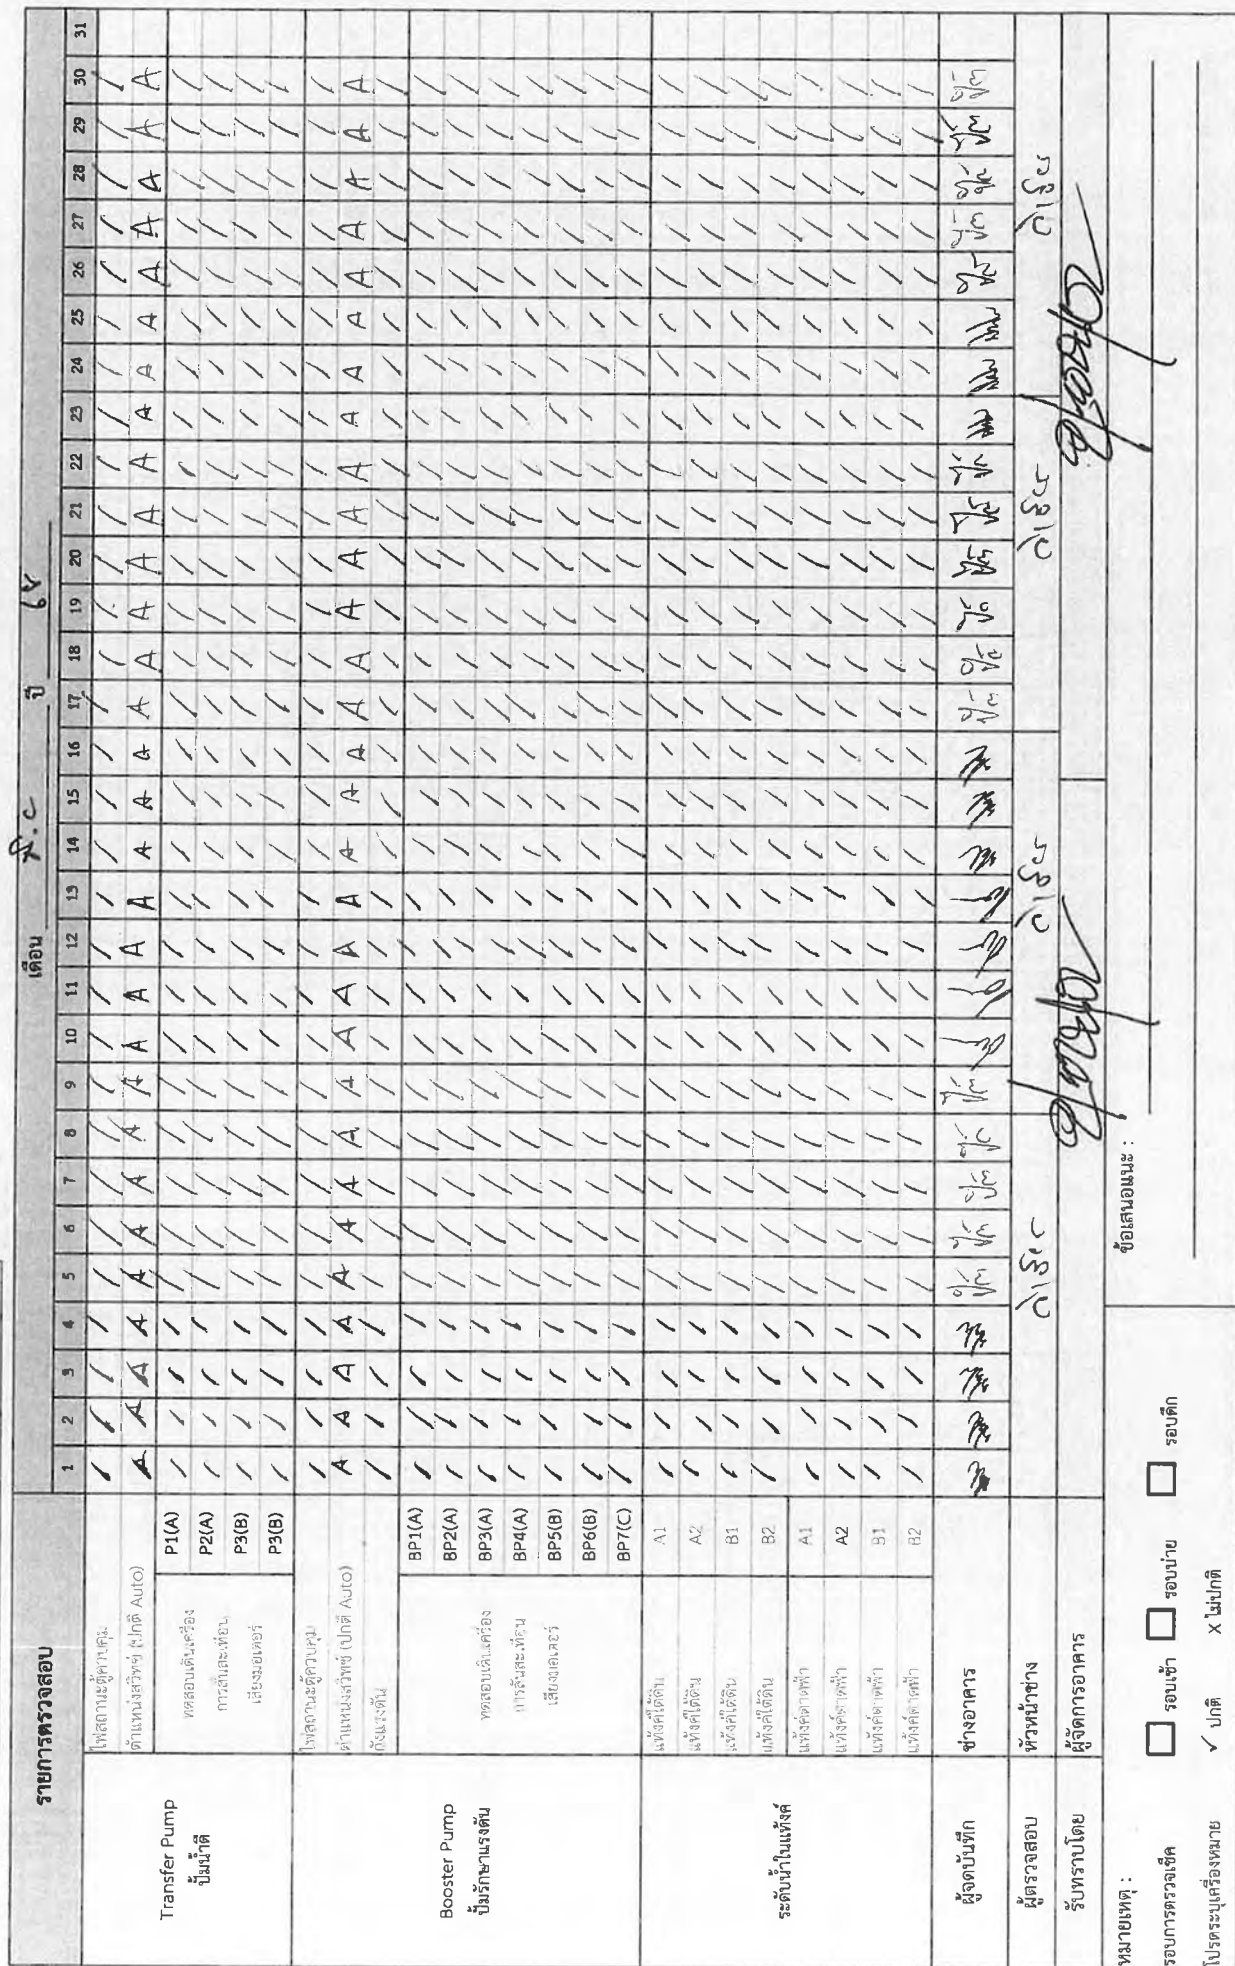 เดือน ปี
รายการตรวจสอบ 1 2 3 4 5 6 7 8 9 10 11 12 13 14 15 16 17 18 19 20 21 22 23 24 25 26 27 28 29 30 31
Transfer Pump
ปั๊มน้ำดี
ไฟสถานะตู้ควบคุม / / / / / / / / / / / / / / / / / / / / / / / / / / / / / /
ตำแหน่งสวิทซ์ (ปกติ Auto) A A A A A A A A A A A A A A A A A A A A A A A A A A A A A A
ทดสอบเดินเครื่อง
การสั่นสะเทือน
เสียงมอเตอร์
P1(A) / / / / / / / / / / / / / / / / / / / / / / / / / / / / / /
P2(A) / / / / / / / / / / / / / / / / / / / / / / / / / / / / / /
P3(B) / / / / / / / / / / / / / / / / / / / / / / / / / / / / / /
P3(B) / / / / / / / / / / / / / / / / / / / / / / / / / / / / / /
Booster Pump
ปั๊มรักษาแรงดัน
ไฟสถานะตู้ควบคุม / / / / / / / / / / / / / / / / / / / / / / / / / / / / / /
ตำแหน่งสวิทซ์ (ปกติ Auto) A A A A A A A A A A A A A A A A A A A A A A A A A A A A A A
ถังแรงดัน / / / / / / / / / / / / / / / / / / / / / / / / / / / / / /
ทดสอบเดินเครื่อง
การสั่นสะเทือน
เสียงมอเตอร์
BP1(A) / / / / / / / / / / / / / / / / / / / / / / / / / / / / / /
BP2(A) / / / / / / / / / / / / / / / / / / / / / / / / / / / / / /
BP3(A) / / / / / / / / / / / / / / / / / / / / / / / / / / / / / /
BP4(A) / / / / / / / / / / / / / / / / / / / / / / / / / / / / / /
BP5(B) / / / / / / / / / / / / / / / / / / / / / / / / / / / / / /
BP6(B) / / / / / / / / / / / / / / / / / / / / / / / / / / / / / /
BP7(C) / / / / / / / / / / / / / / / / / / / / / / / / / / / / / /
ระดับน้ำในแท้งค์
แท้งค์ใต้ดิน A1 / / / / / / / / / / / / / / / / / / / / / / / / / / / / / /
แท้งค์ใต้ดิน A2 / / / / / / / / / / / / / / / / / / / / / / / / / / / / / /
แท้งค์ใต้ดิน B1 / / / / / / / / / / / / / / / / / / / / / / / / / / / / / /
แท้งค์ใต้ดิน B2 / / / / / / / / / / / / / / / / / / / / / / / / / / / / / /
แท้งค์ดาดฟ้า A1 / / / / / / / / / / / / / / / / / / / / / / / / / / / / / /
แท้งค์ดาดฟ้า A2 / / / / / / / / / / / / / / / / / / / / / / / / / / / / / /
แท้งค์ดาดฟ้า B1 / / / / / / / / / / / / / / / / / / / / / / / / / / / / / /
แท้งค์ดาดฟ้า B2 / / / / / / / / / / / / / / / / / / / / / / / / / / / / / /
ผู้จดบันทึก ช่างอาคาร
ผู้ตรวจสอบ หัวหน้าช่าง
รับทราบโดย ผู้จัดการอาคาร
หมายเหตุ : ข้อเสนอแนะ :
รอบการตรวจเช็ค รอบเช้า รอบบ่าย รอบดึก
โปรดระบุเครื่องหมาย ✓ ปกติ X ไม่ปกติ